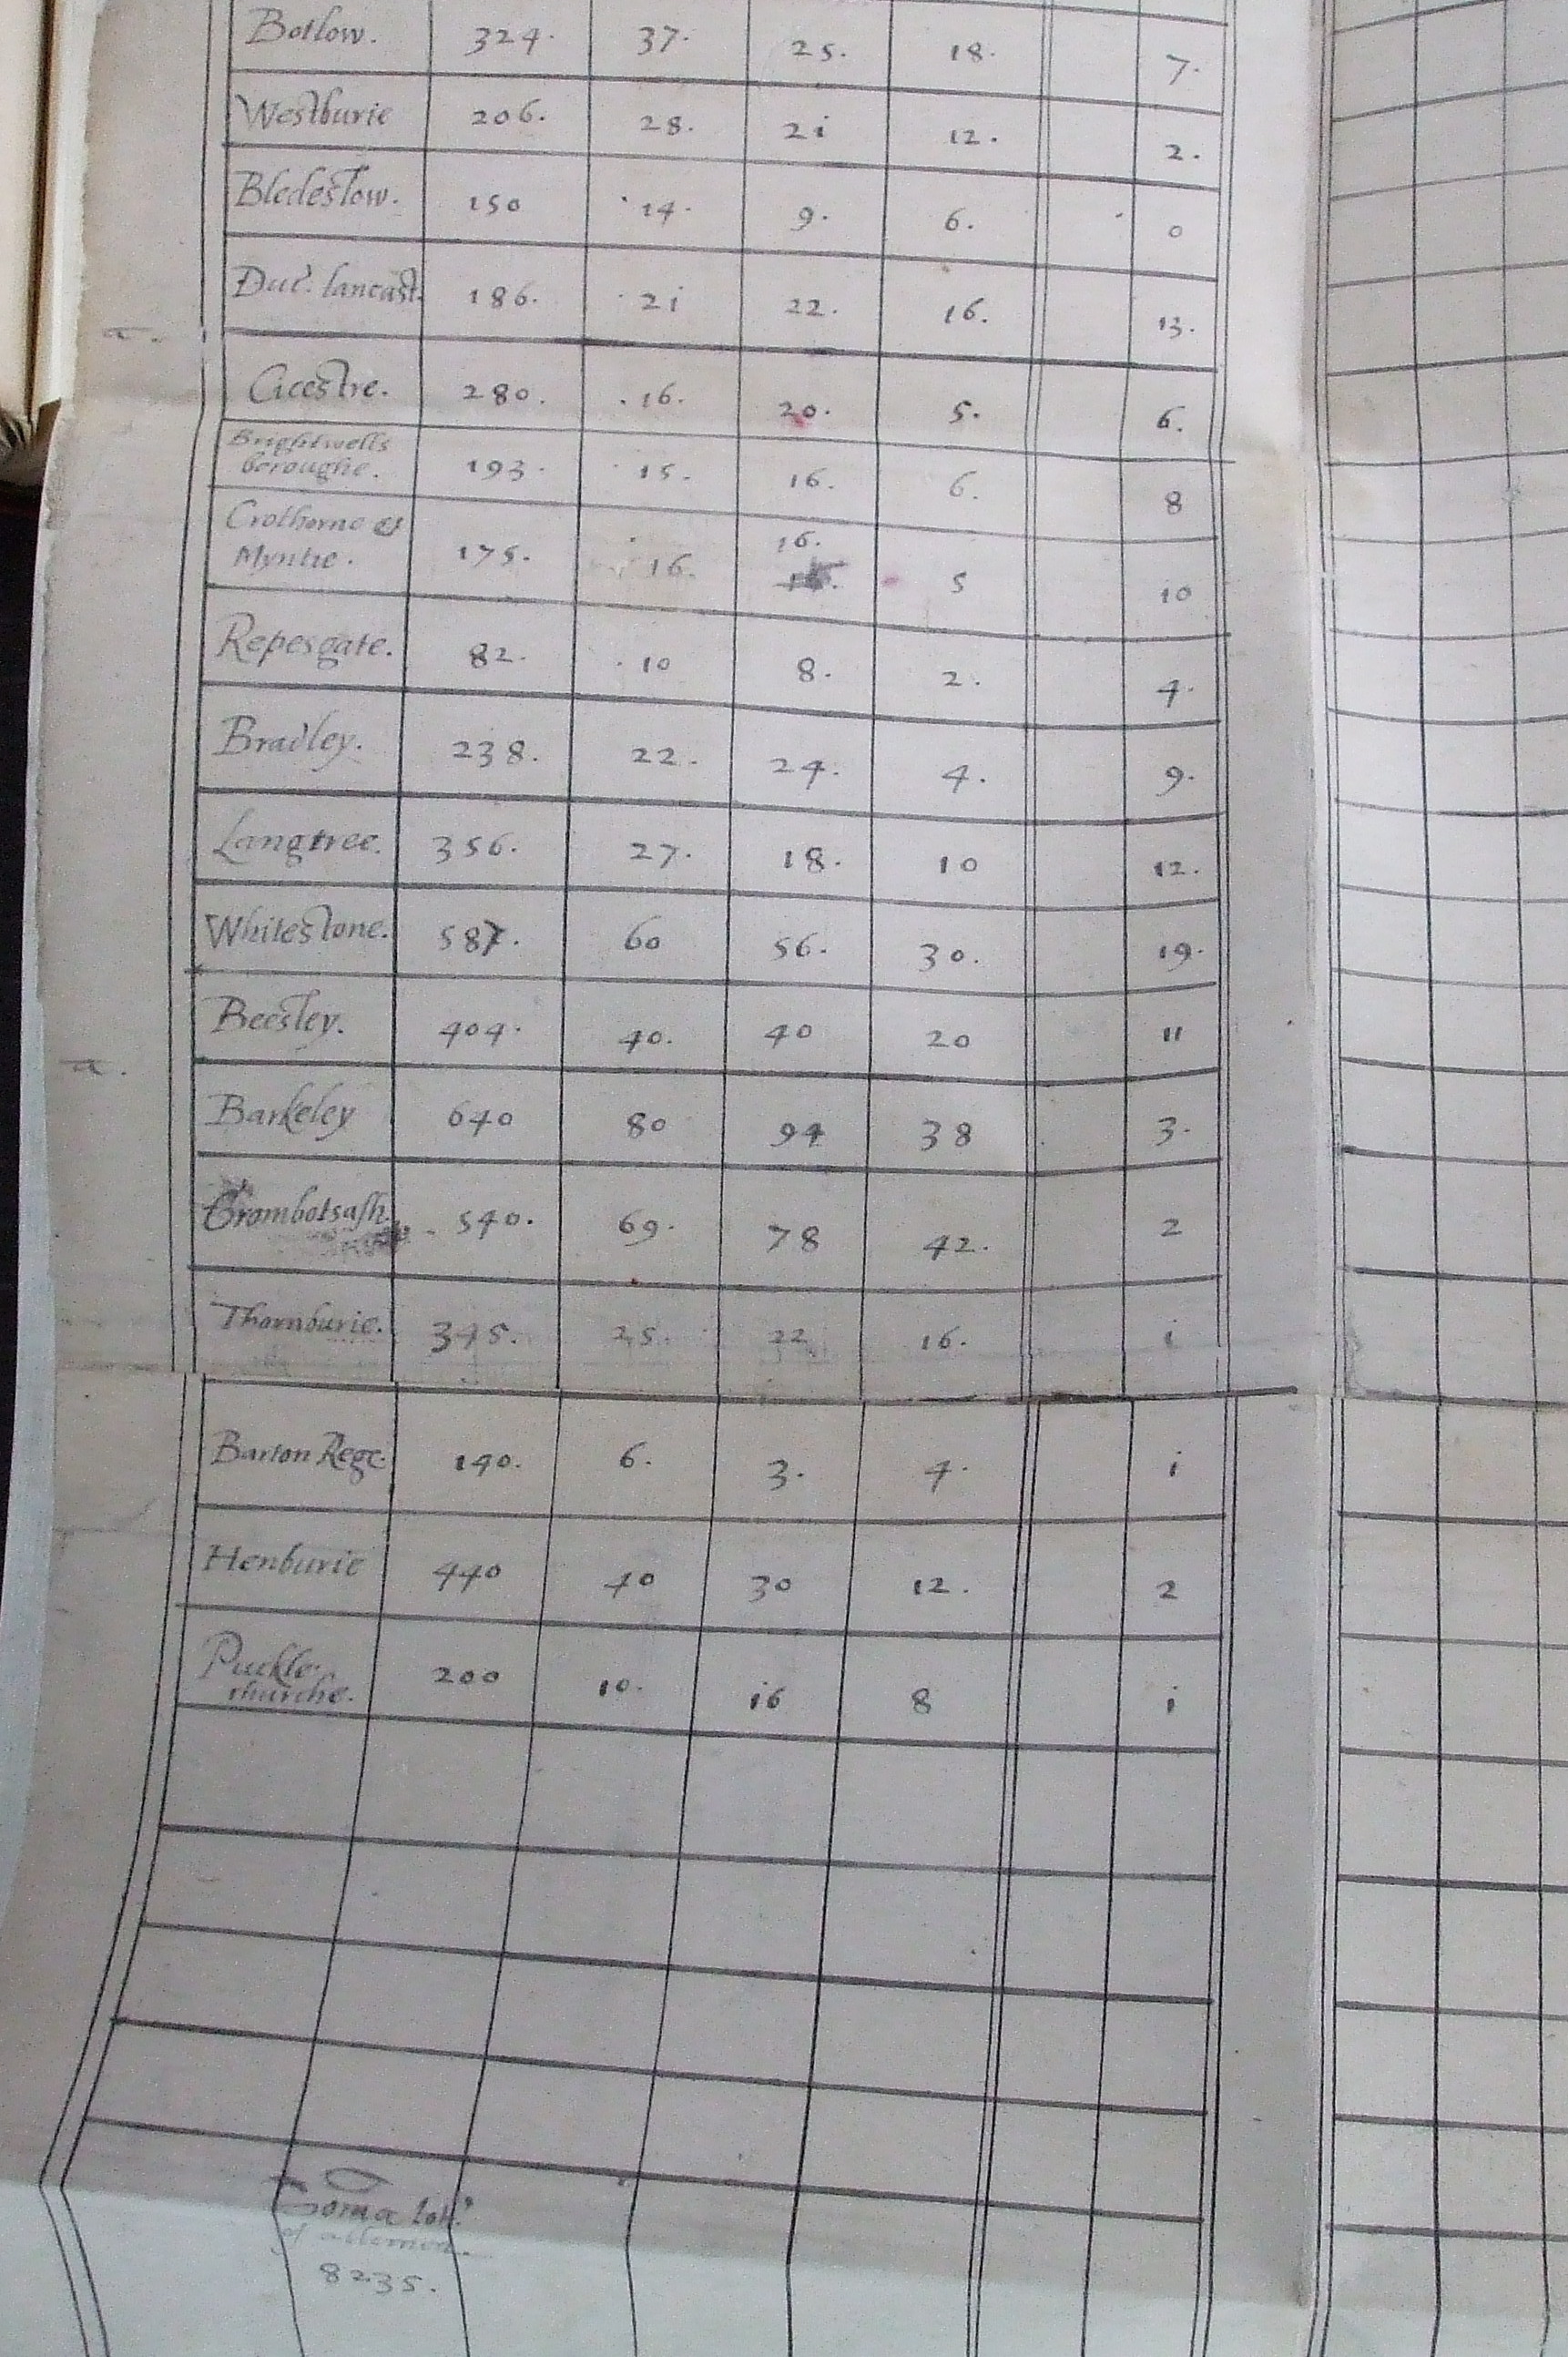 Botlow. 324. 37. 25. 18. 7.
Westburie 206. 28. 2i 12. 2.
Bledestow. 150 14. 9. 6. 0
Duc. lancast. 186. 2i 22. 16. 13.
a.
Cicestre. 280. 16. 20. 5. 6.
Brightwells
beroughe. 193. 15. 16. 6. 8
Crothorne et 16.
Myntie. 175. 16. 5 10
Repesgate. 82. 10 8. 2. 4.
Bradley. 238. 22. 24. 4. 9.
Langtree. 356. 27. 18. 10 12.
Whitestone. 587. 60 56. 30. 19.
Beesley. 404. 40. 40 20 11
a.
Barkeley 640 80 94 38 3.
Grombotsash 540. 69. 78 42. 2
Thornburie. 25. 22 16. i
Barton Rege. 140. 6. 3. 4. i
Henburie 440 40 30 12. 2
Puckle
churche. 200 10. i6 8 i
Soma tot.
of all men.
8235.